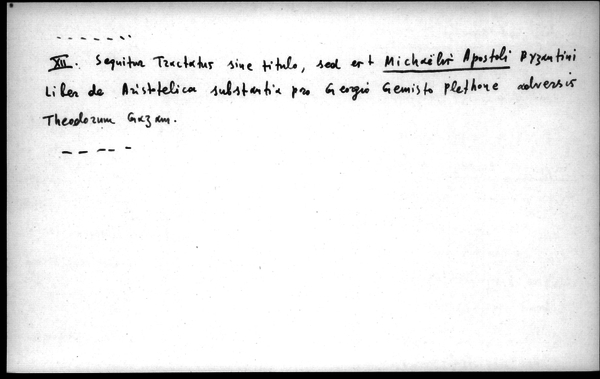 XII. Sequitur Tractatus sine titulo, sed est Michaëlis Apostoli Byzantini
Liber de Aristotelica substantia pro Georgio Gemisto Plethone adversus
Theodorum Gazam.